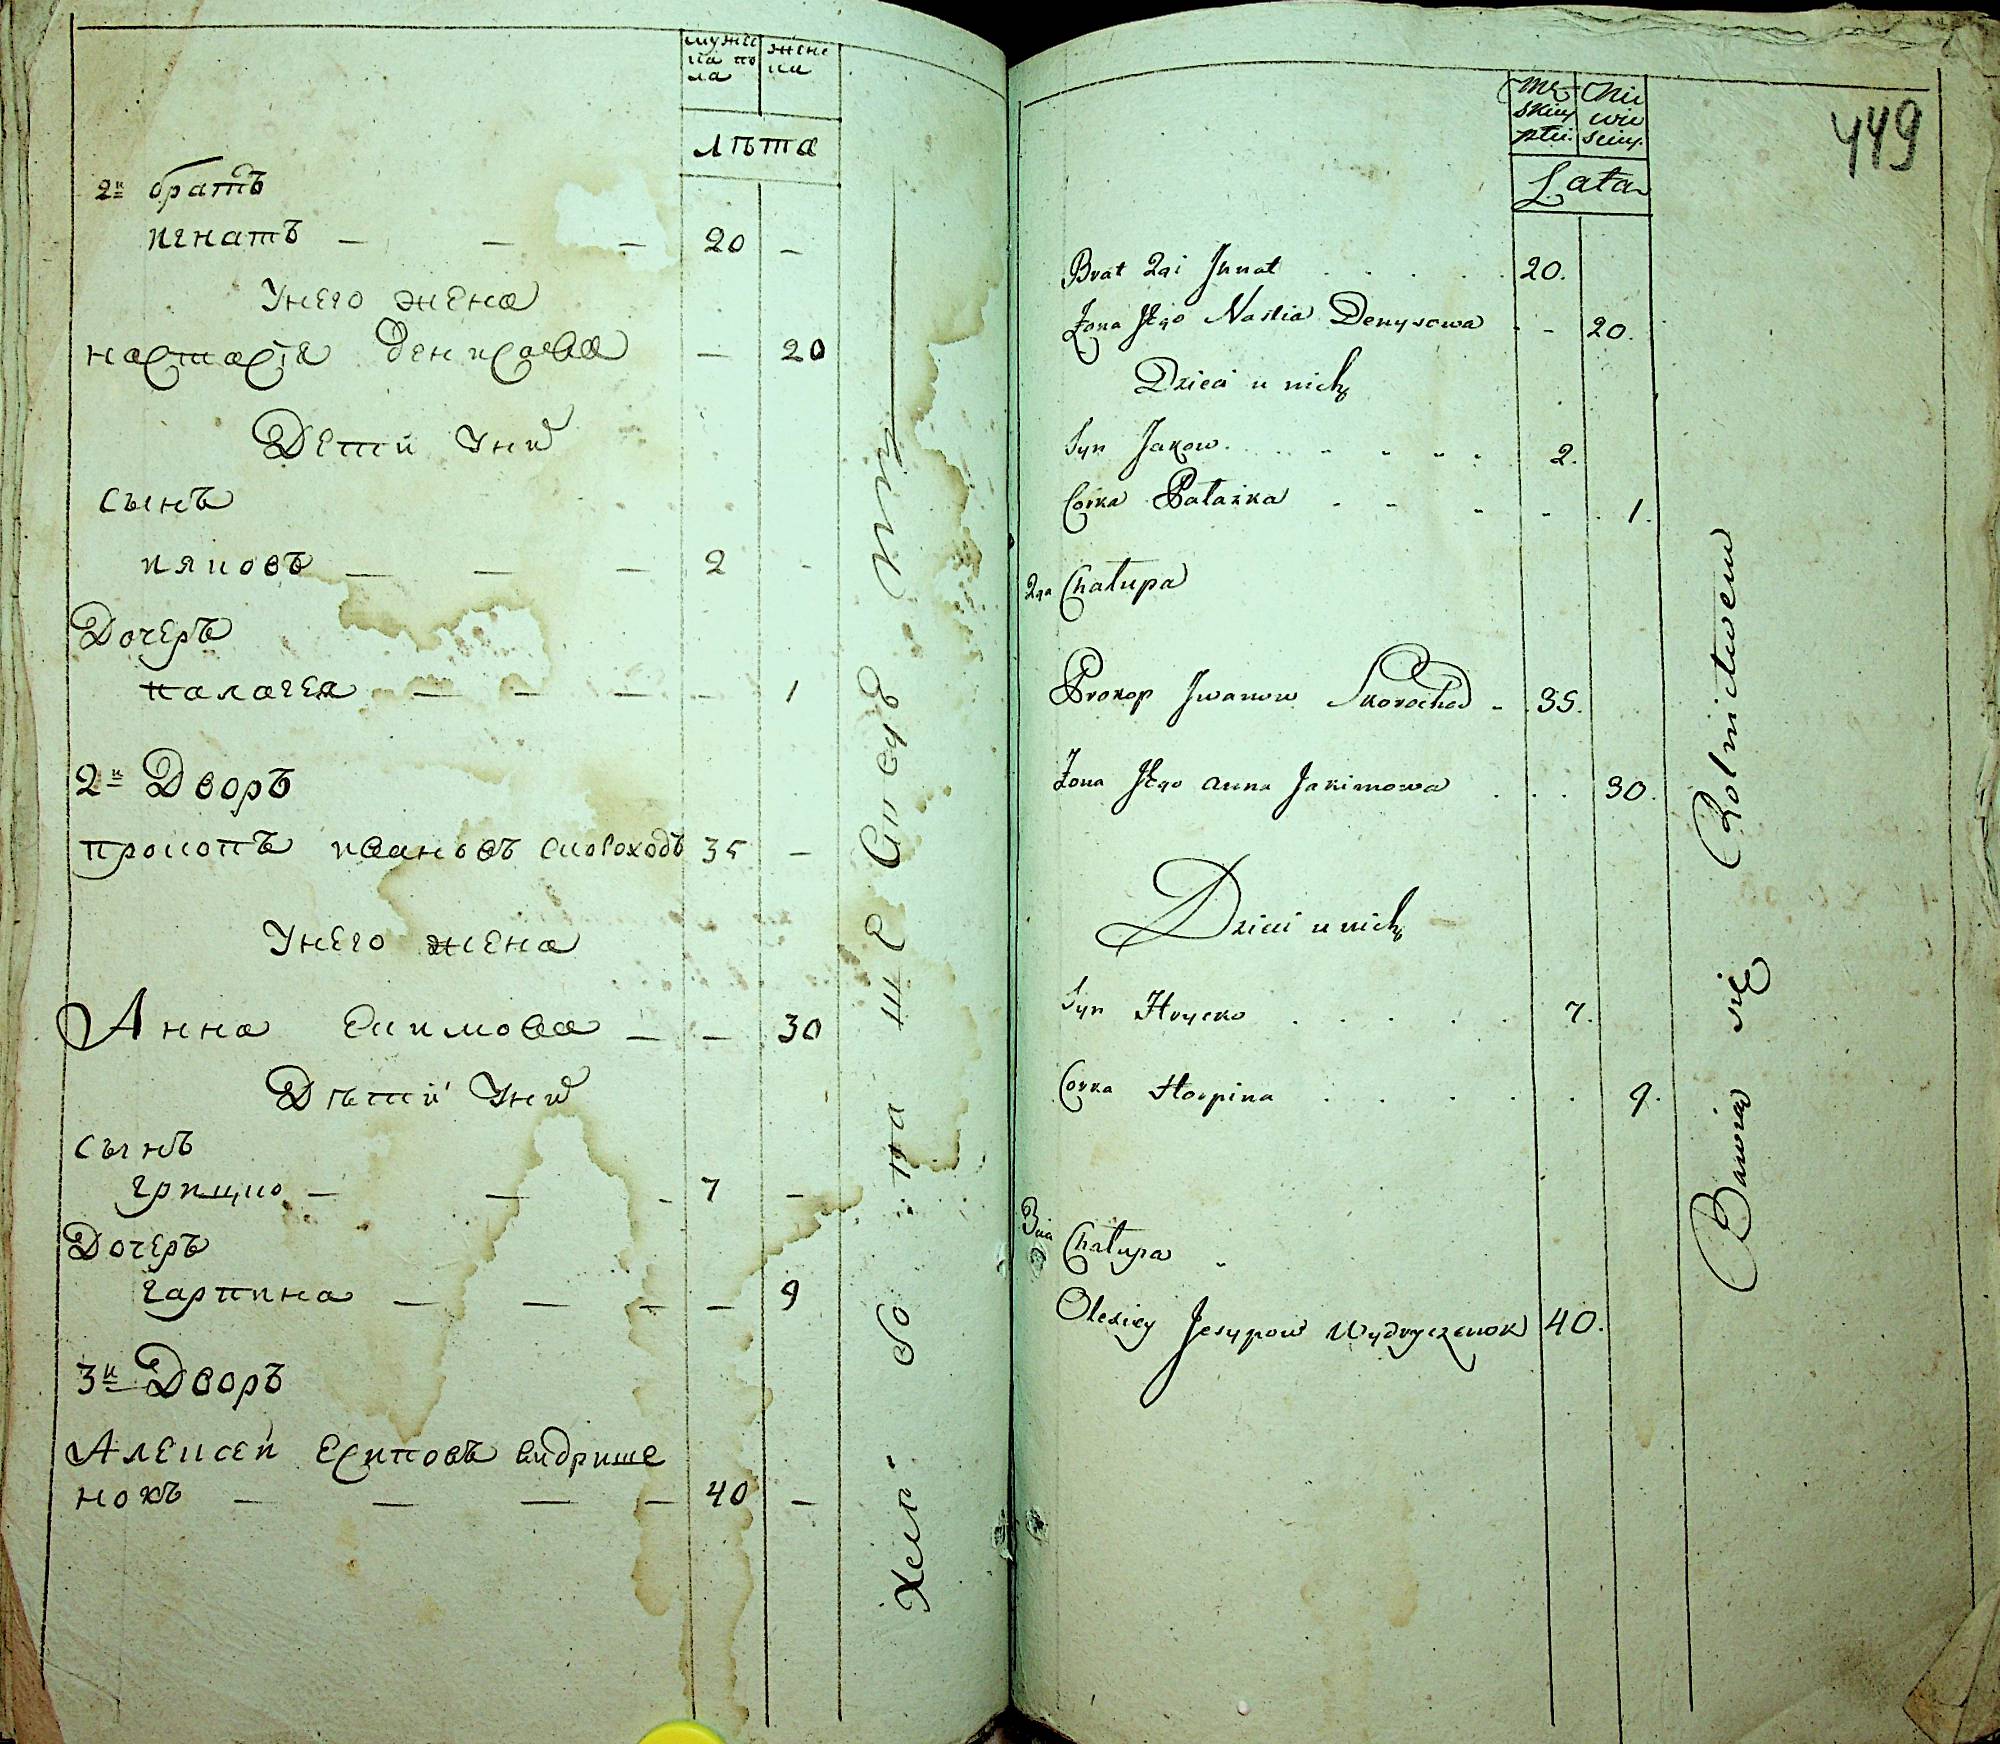 мужес
ка по
ла
женс
ки
лѣта
2й братъ
игнатъ — — — 20 —
У него жена
настасія денисова — 20
Дети У них
сынъ
ияковъ — — — 2 -
Дочеръ
палагея — — — — 1
2й Дворъ
прокопъ ивановъ скороходъ 35 —
У него жена
Анна Екимова — — 30
Дѣти У них
сынъ
грицко — — - 7 —
Дочеръ
гарпина — — — — 9
3й Дворъ
Алексей Есиповъ видрише
нокъ — — — — 40 —
449
Mę
skiey
płci.
Nie
wie
sciey.
Lata
Brat 2gi Ihnat . . . . . 20.
Żona Jego Nastia Denysowa - - 20.
Dzieci u nich
Syn Jakow . . . . . . 2.
Corka Pałażka - - - - . 1.
2ga Chałupa
Prokop Iwanow Skorochod - 35.
Żona Jego Anna Jakimowa . . . 30.
Dzieci u nich
Syn Hrycko . . . . . 7.
Corka Horpina . . . . . 9.
3cia Chałupa
Olexiey Jesypow Wydryczenok 40.
Bawią się Rolnictwem